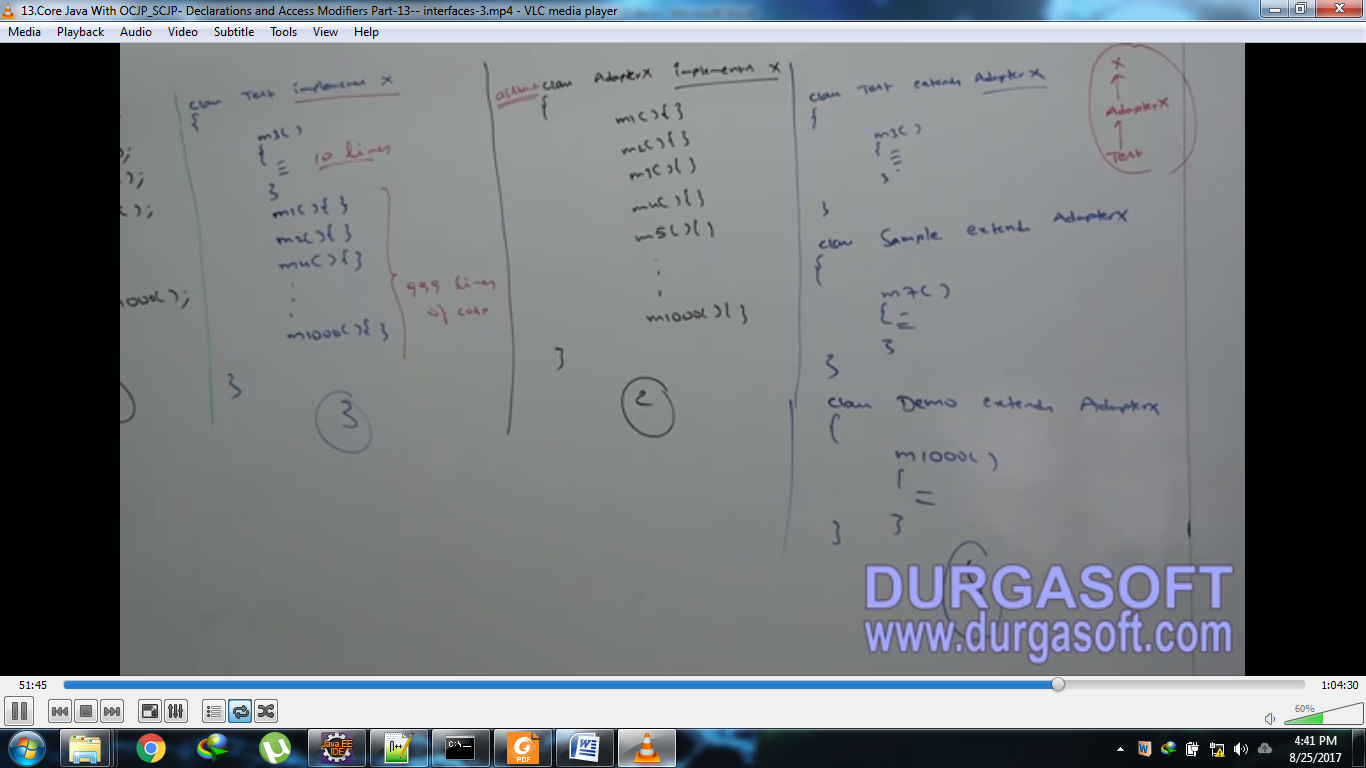 13.Core Java With OCJP_SCJP- Declarations and Access Modifiers Part-13-- interfaces-3.mp4 - VLC media player
Media Playback Audio Video Subtitle Tools View Help
);
);
);
1000();
class Test implements X
{
m3()
{
10 lines
}
m1(){ }
m2(){ }
m4(){ }
m1000(){ }
999 lines
of code
}
3
abstract class AdapterX implements X
{
m1(){ }
m2(){ }
m3(){ }
m4(){ }
m5(){ }
m1000(){ }
}
2
class Test extends AdapterX
{
m3()
{
}
}
class Sample extends AdapterX
{
m7()
{
}
}
class Demo extends AdapterX
{
m1000()
{
}
}
X
AdapterX
Test
DURGASOFT
www.durgasoft.com
51:45
1:04:30
60%
Java EE
IDE
C:\_
PDF
W
4:41 PM
8/25/2017